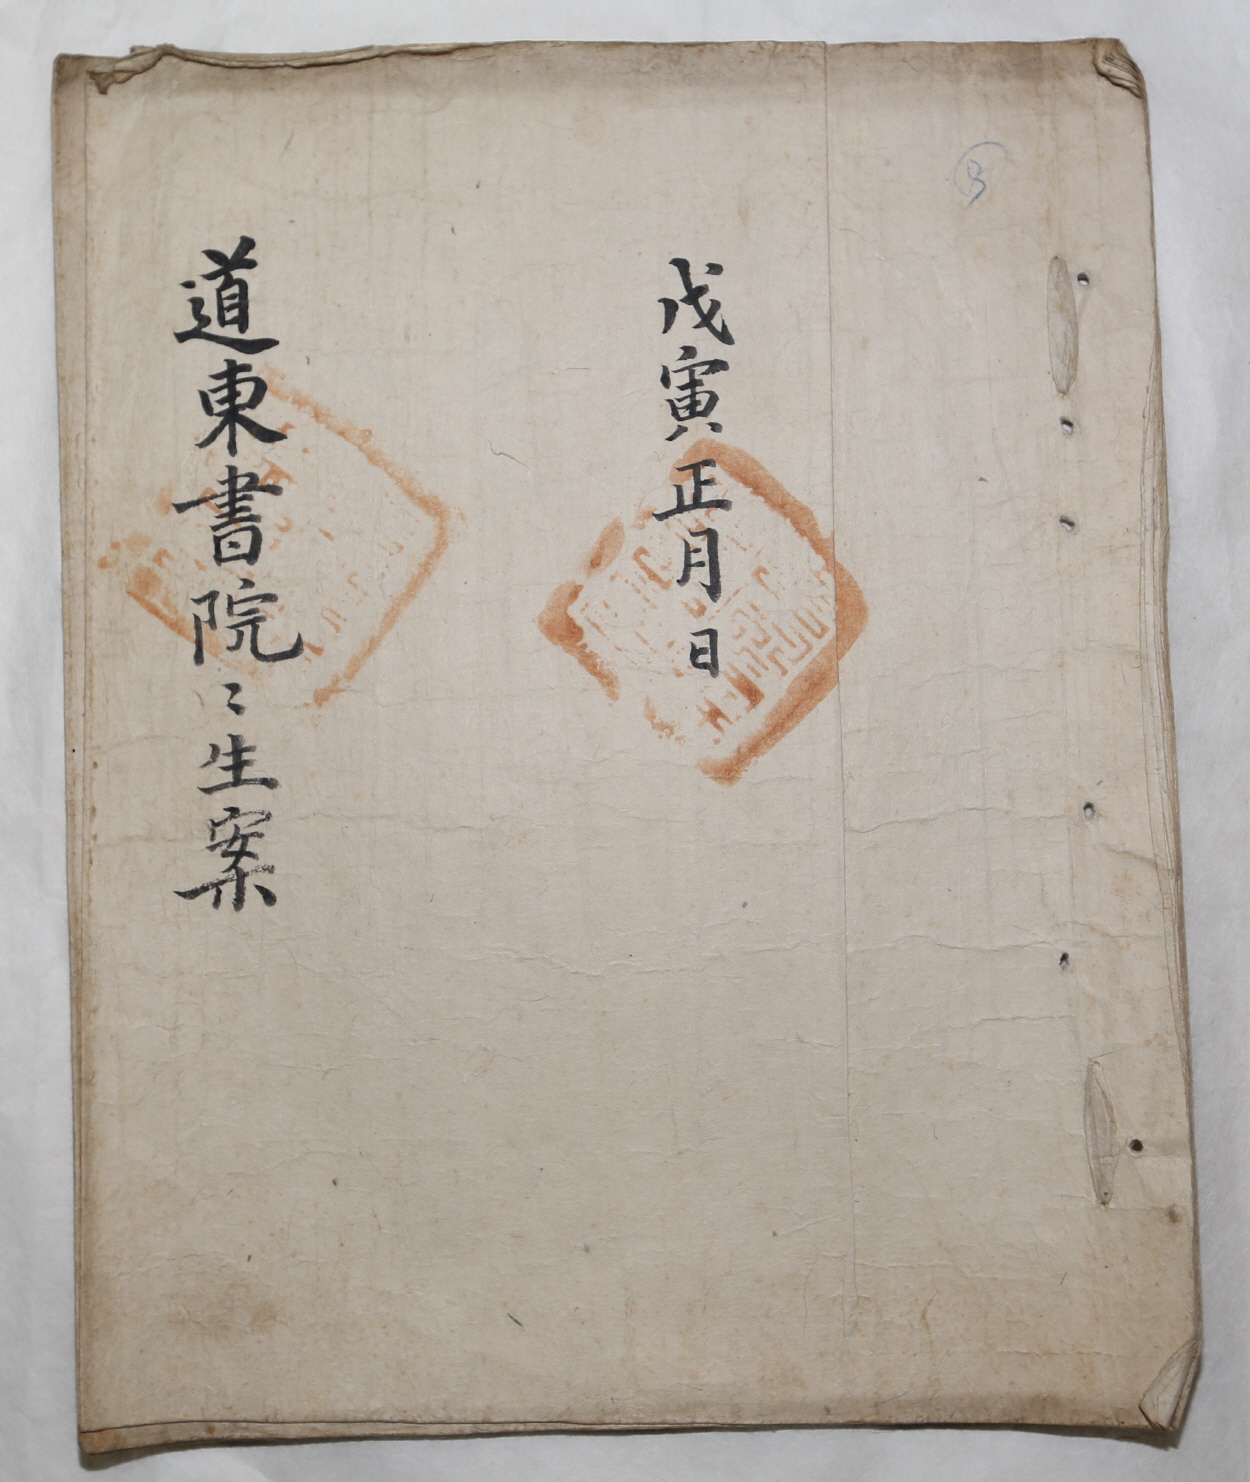 戊寅正月日
道東書院〻生案